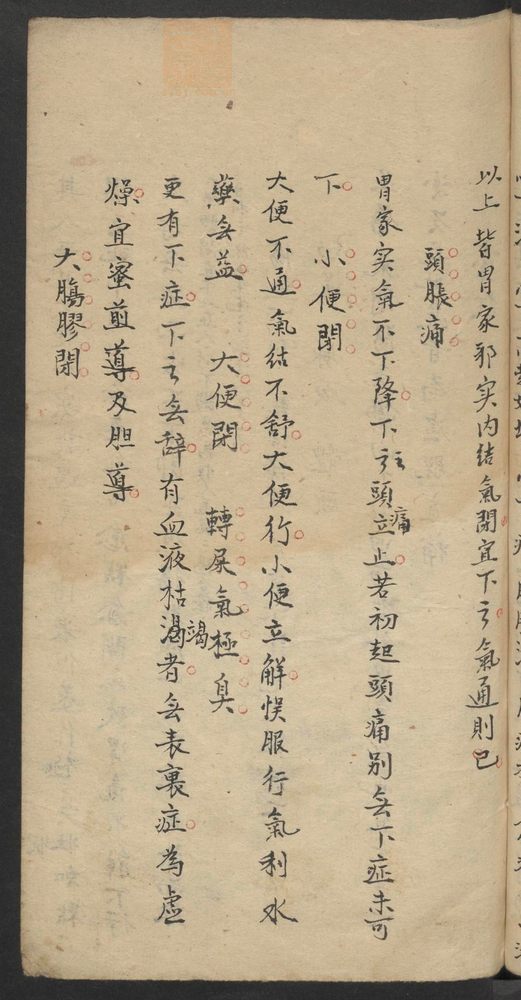 以上皆胃家邪实内结氣閉宜下之氣通則已
頭脹痛
胃家实氣不下降下之頭痛立止若初起頭痛別無下症未可
下　小便閉
大便不通氣结不舒大便行小便立觧悮服行氣利水
藥無益　大便閉　轉屎氣極臭
更有下症下之無辞有血液枯渴竭者無表裏症為虚
燥宜蜜煎導及胆導
大膓膠閉